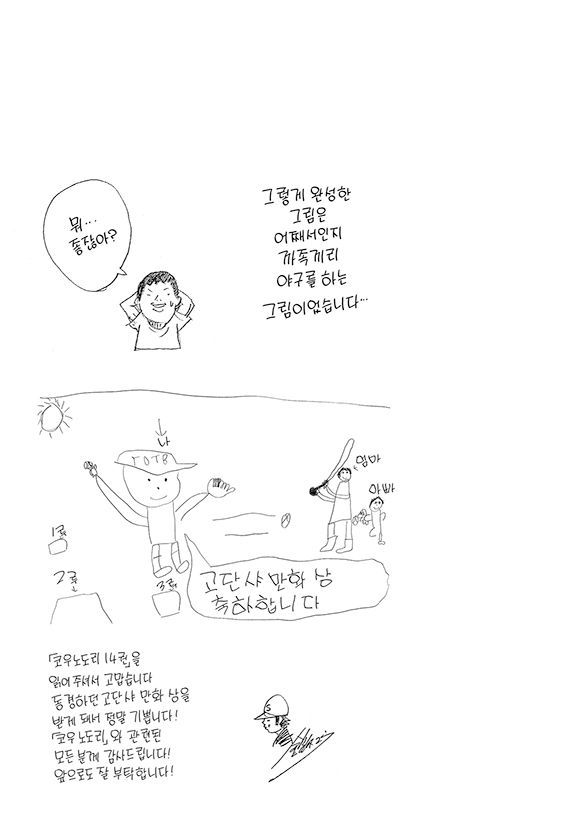 그렇게 완성한
그림은
어째서인지
가족끼리
야구를 하는
그림이었습니다…
뭐…
좋잖아?
나
TOTB
엄마
아빠
1루
2루
3루
고단샤 만화 상
축하합니다
「코우노도리 14권」을
읽어 주셔서 고맙습니다
동경하던 고단샤 만화 상을
받게 돼서 정말 기쁩니다!
「코우노도리」와 관련된
모든 분께 감사드립니다!
앞으로도 잘 부탁합니다!
S